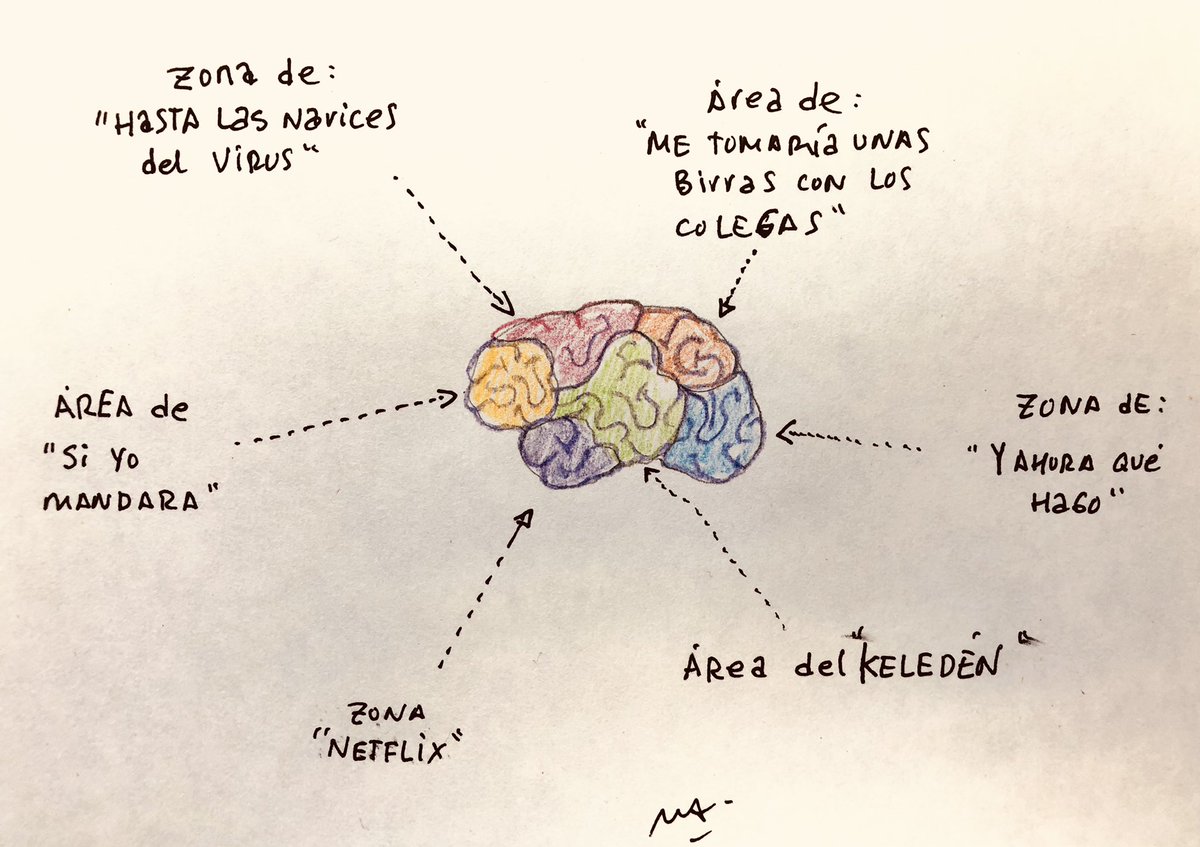 Zona de:
"HASTA LAS NARICES
del VIRUS"
Área de:
"ME TOMARÍA UNAS
Birras CON LOS
COLEGAS"
ÁREA de
"Si YO
MANDARA"
ZONA DE:
"Y AHORA QUÉ
HAGO"
Área del "KELEDÉN"
ZONA
"NETFLIX"
MA-